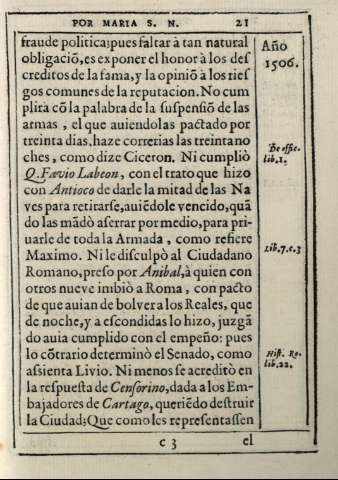 POR MARIA S. N. 21
fraude politica; pues faltar à tan natural
obligaciõ, es exponer el honor à los des
creditos de la fama, y la opiniõ à los ries
gos comunes de la reputacion. No cum
plirà cõ la palabra de la suspensiõ de las
armas, el que auiendolas pactado por
treinta dias, haze correrias las treinta no
ches, como dize Ciceron. Ni cumpliò
Q. Favio Labeon, con el trato que hizo
con Antioco de darle la mitad de las Na
ves para retirarse, auiẽdole vencido, quã
do las mãdò aserrar por medio, para pri-
uarle de toda la Armada, como refiere
Maximo. Ni le disculpò al Ciudadano
Romano, preso por Anibal, à quien con
otros nueve imbiò a Roma, con pacto
de que auian de bolver a los Reales, que
de noche, y a escondidas lo hizo, juzgã
do avia cumplido con el empeño: pues
lo cõtrario determinò el Senado, como
assienta Livio. Ni menos se acreditò en
la respuesta de Censorino, dada a los Em-
bajadores de Cartago, queriẽdo destruir
la Ciudad; Que como les representassen
c 3 el
Año
1506.
De offic.
lib. 1.
Lib. 7. c. 3
Hist. Ro.
lib. 22.